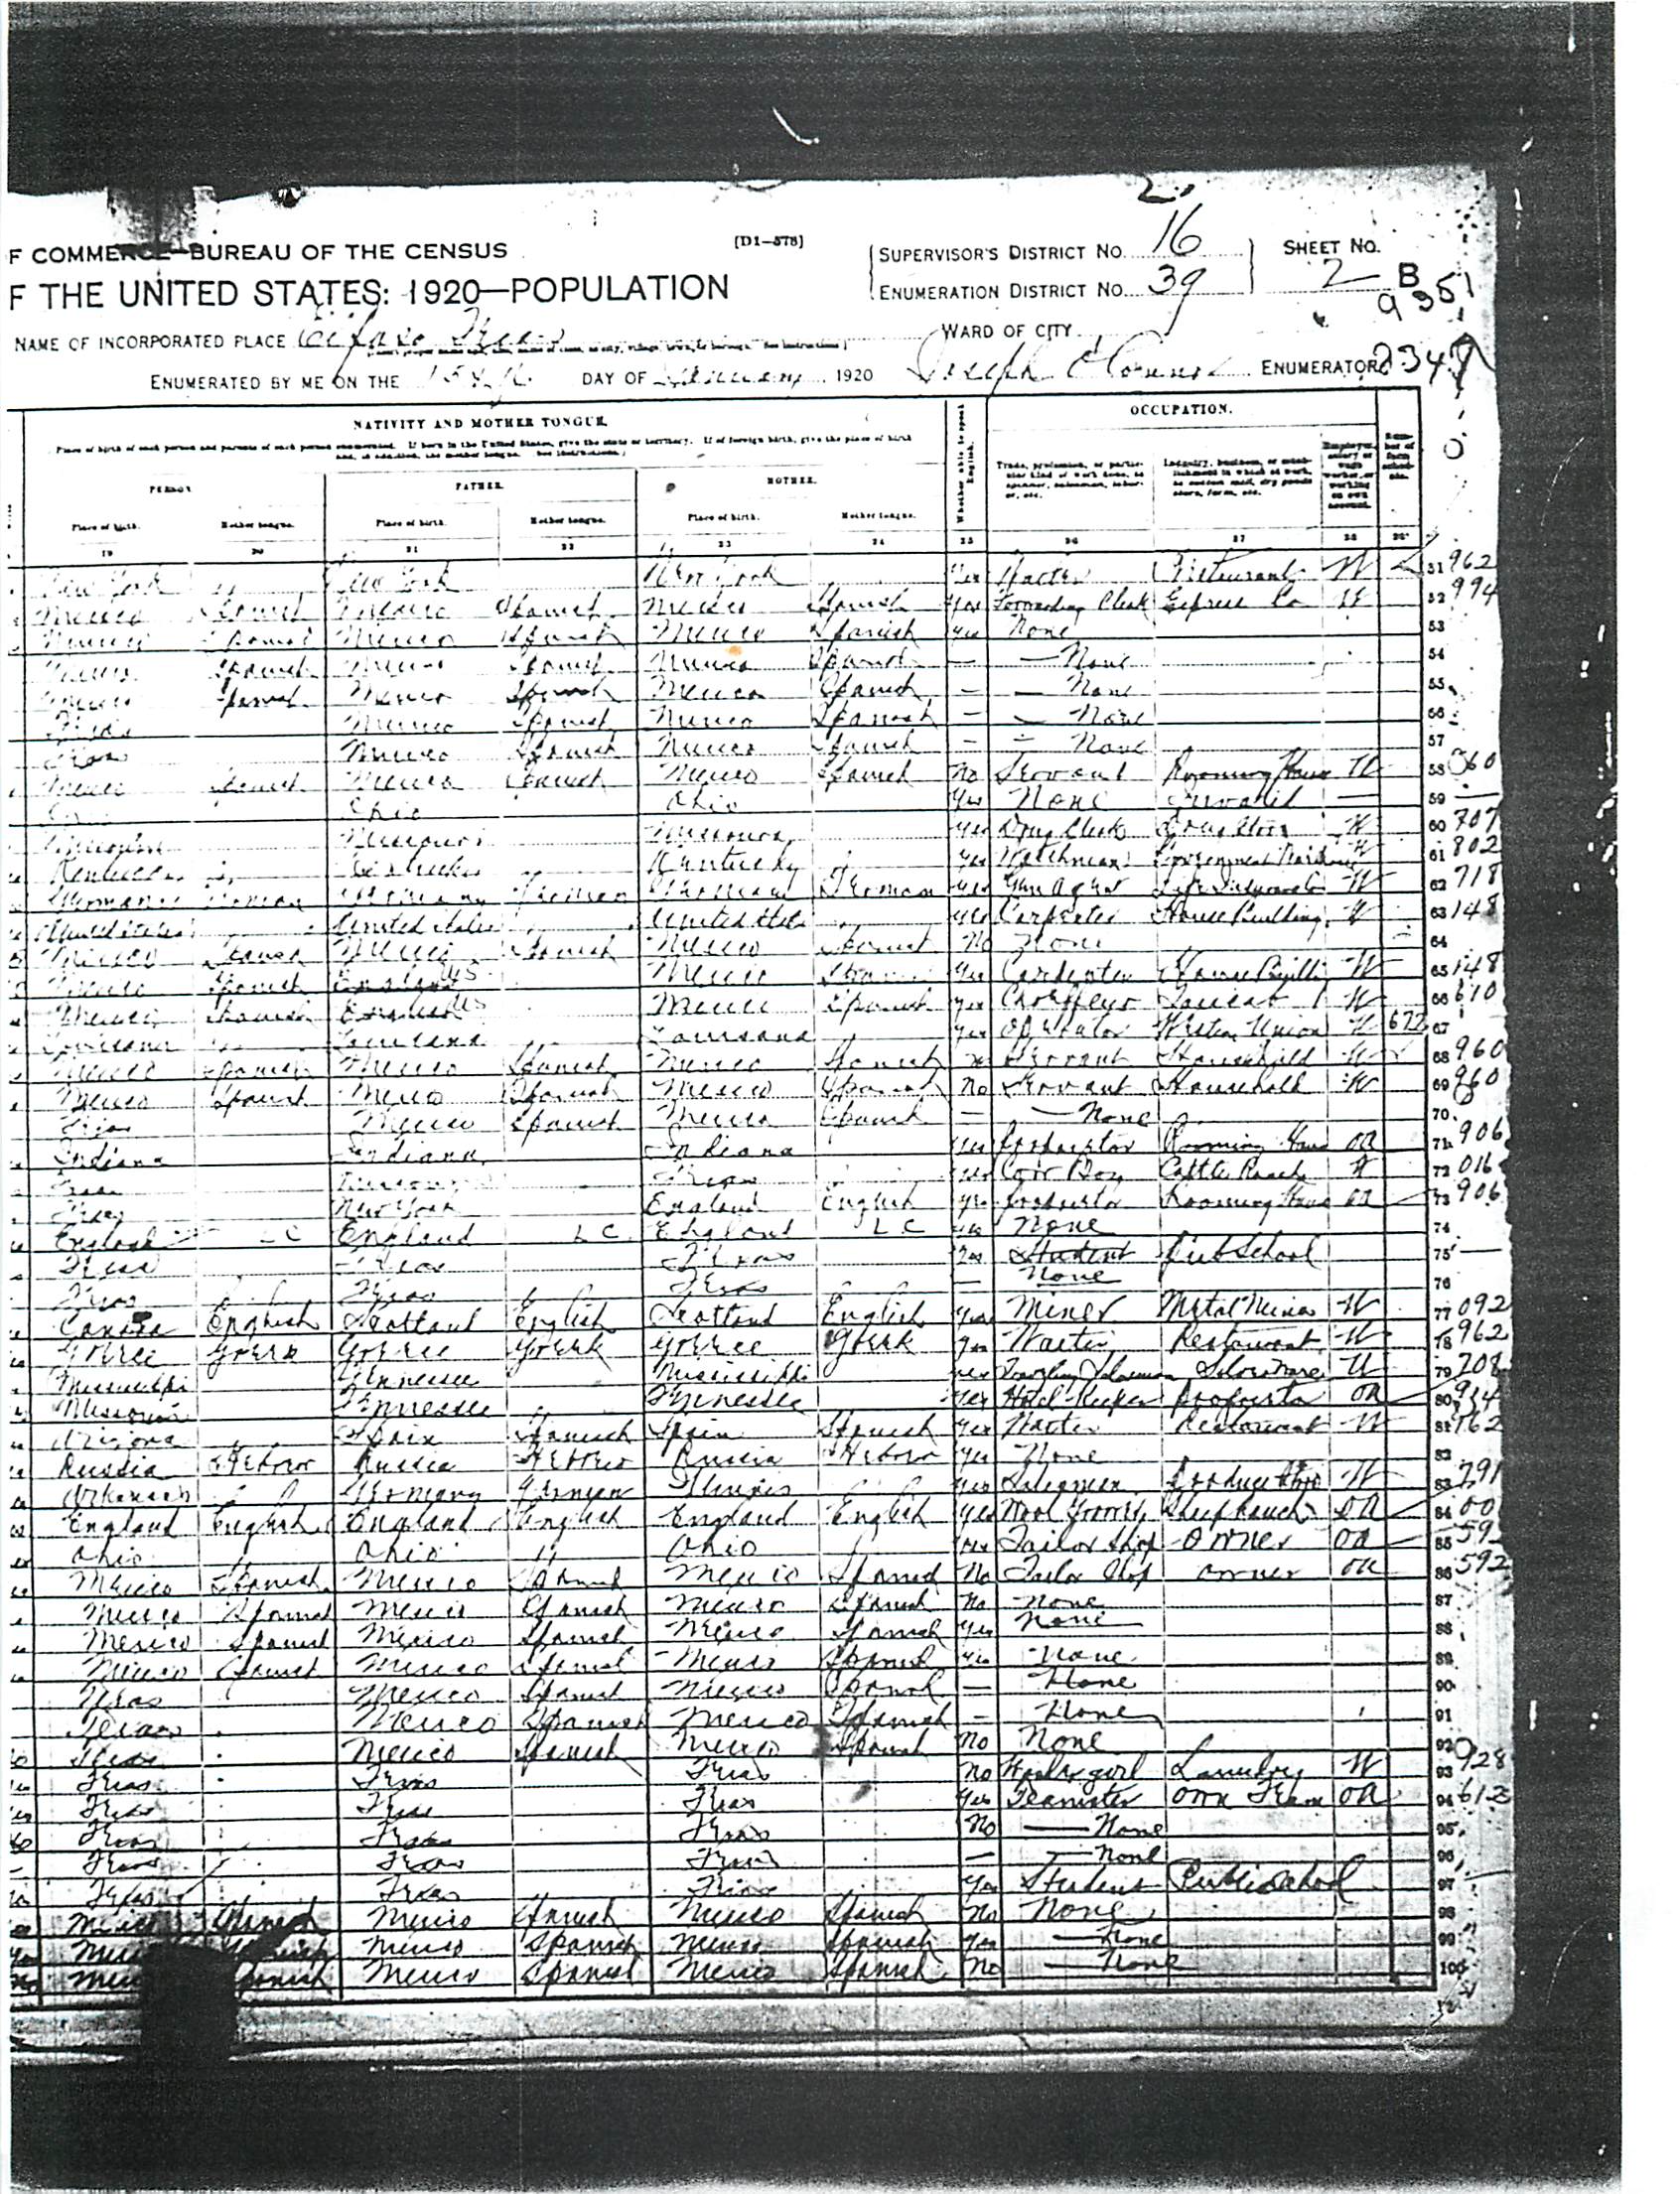 2
F COMMERCE—BUREAU OF THE CENSUS [D1-578] SUPERVISOR'S DISTRICT NO. 16 SHEET NO.
F THE UNITED STATES: 1920—POPULATION ENUMERATION DISTRICT NO. 39 2 B
9351
NAME OF INCORPORATED PLACE El Paso Texas WARD OF CITY
ENUMERATED BY ME ON THE DAY OF January 1920 Joseph O'Connor ENUMERATOR
NATIVITY AND MOTHER TONGUE. OCCUPATION.
Place of birth of each person and parents of each person enumerated. If born in the United States, give the state or territory. If of foreign birth, give the place of birth
and, in addition, the mother tongue. (See instructions.)
PERSON. FATHER. MOTHER. Whether able to speak English.
Place of birth. Mother tongue. Place of birth. Mother tongue. Place of birth. Mother tongue.
19 20 21 22 23 24 25 26 27 28
New York New York New York Yes Waiter Restaurant W 51 962
Mexico Spanish Mexico Spanish Mexico Spanish Yes Clerk Express Co W 52 994
Mexico Spanish Mexico Spanish Mexico Spanish Yes None 53
Mexico Spanish Mexico Spanish Mexico Spanish — None 54
Mexico Spanish Mexico Spanish Mexico Spanish — None 55
Texas Mexico Spanish Mexico Spanish — None 56
Texas Mexico Spanish Mexico Spanish — None 57
Mexico Spanish Mexico Spanish Mexico Spanish No Servant Rooming House W 58 960
Ohio Ohio Ohio Yes None 59
Missouri Missouri Missouri Yes Drug Clerk Drug Store W 60 707
Kentucky Kentucky Kentucky Yes Watchman Government W 61 802
Germany German Germany German Germany German Yes Life Insurance W 62 718
United States United States United States Yes Carpenter House Building W 63 148
Mexico Spanish Mexico Spanish Mexico Spanish No None 64
Mexico Spanish England Mexico Spanish Yes Carpenter House W 65 148
Mexico Spanish Mexico Spanish Yes Chauffeur W 66 610
Louisiana Louisiana Louisiana Yes Operator Western Union W 672 67
Mexico Spanish Mexico Spanish Mexico Spanish No Servant Household W 68 960
Mexico Spanish Mexico Spanish Mexico Spanish No Servant Household W 69 960
Texas Mexico Spanish Mexico Spanish — None 70
Indiana Indiana Indiana Yes Proprietor Rooming House OA 71 906
Texas Texas Yes Cow Boy Cattle Ranch W 72 016
Texas New York England English Yes Proprietor Rooming House OA 73 906
England LC England LC England LC Yes None 74
Texas Texas Texas Yes Student Pub School 75
Texas Texas Texas — None 76
Canada English Scotland English Scotland English Yes Miner Metal Mine W 77 092
Greece Greek Greece Greek Greece Greek Yes Waiter Restaurant W 78 962
Mississippi Tennessee Mississippi Yes Traveling Salesman W 79 708
Missouri Tennessee Tennessee Yes Hotel Keeper Proprietor OA 80
Arizona Spain Spanish Spain Spanish Yes Waiter Restaurant W 81 962
Russia Hebrew Russia Hebrew Russia Hebrew Yes None 82
Arkansas Germany German Illinois Yes Salesman Produce W 83 791
England English England English England English Yes Wool Grower Sheep Ranch OA 84
Ohio Ohio Ohio Yes Tailor Shop Owner OA 85 592
Mexico Spanish Mexico Spanish Mexico Spanish No Tailor Shop owner OA 86 592
Mexico Spanish Mexico Spanish Mexico Spanish No None 87
Mexico Spanish Mexico Spanish Mexico Spanish Yes None 88
Mexico Spanish Mexico Spanish Mexico Spanish Yes None 89
Texas Mexico Spanish Mexico Spanish — None 90
Texas Mexico Spanish Mexico Spanish — None 91
Texas Mexico Spanish Mexico Spanish No None 92
Texas Texas Texas No Laundry W 93 928
Texas Texas Texas Yes Teamster Own Team OA 94 612
Texas Texas Texas No None 95
Texas Texas Texas — None 96
Texas Texas Texas Yes Student Public School 97
Mexico Spanish Mexico Spanish Mexico Spanish No None 98
Spanish Mexico Spanish Mexico Spanish Yes None 99
No Spanish Mexico Spanish Mexico Spanish No None 100